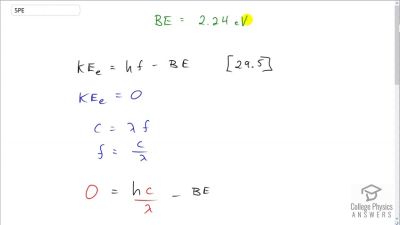 5PE
BE = 2.24 eV
KEe = hf - BE [29.5]
KEe = 0
c = λ f
f = c/λ
0 = hc/λ - BE
College Physics
ANSWERS